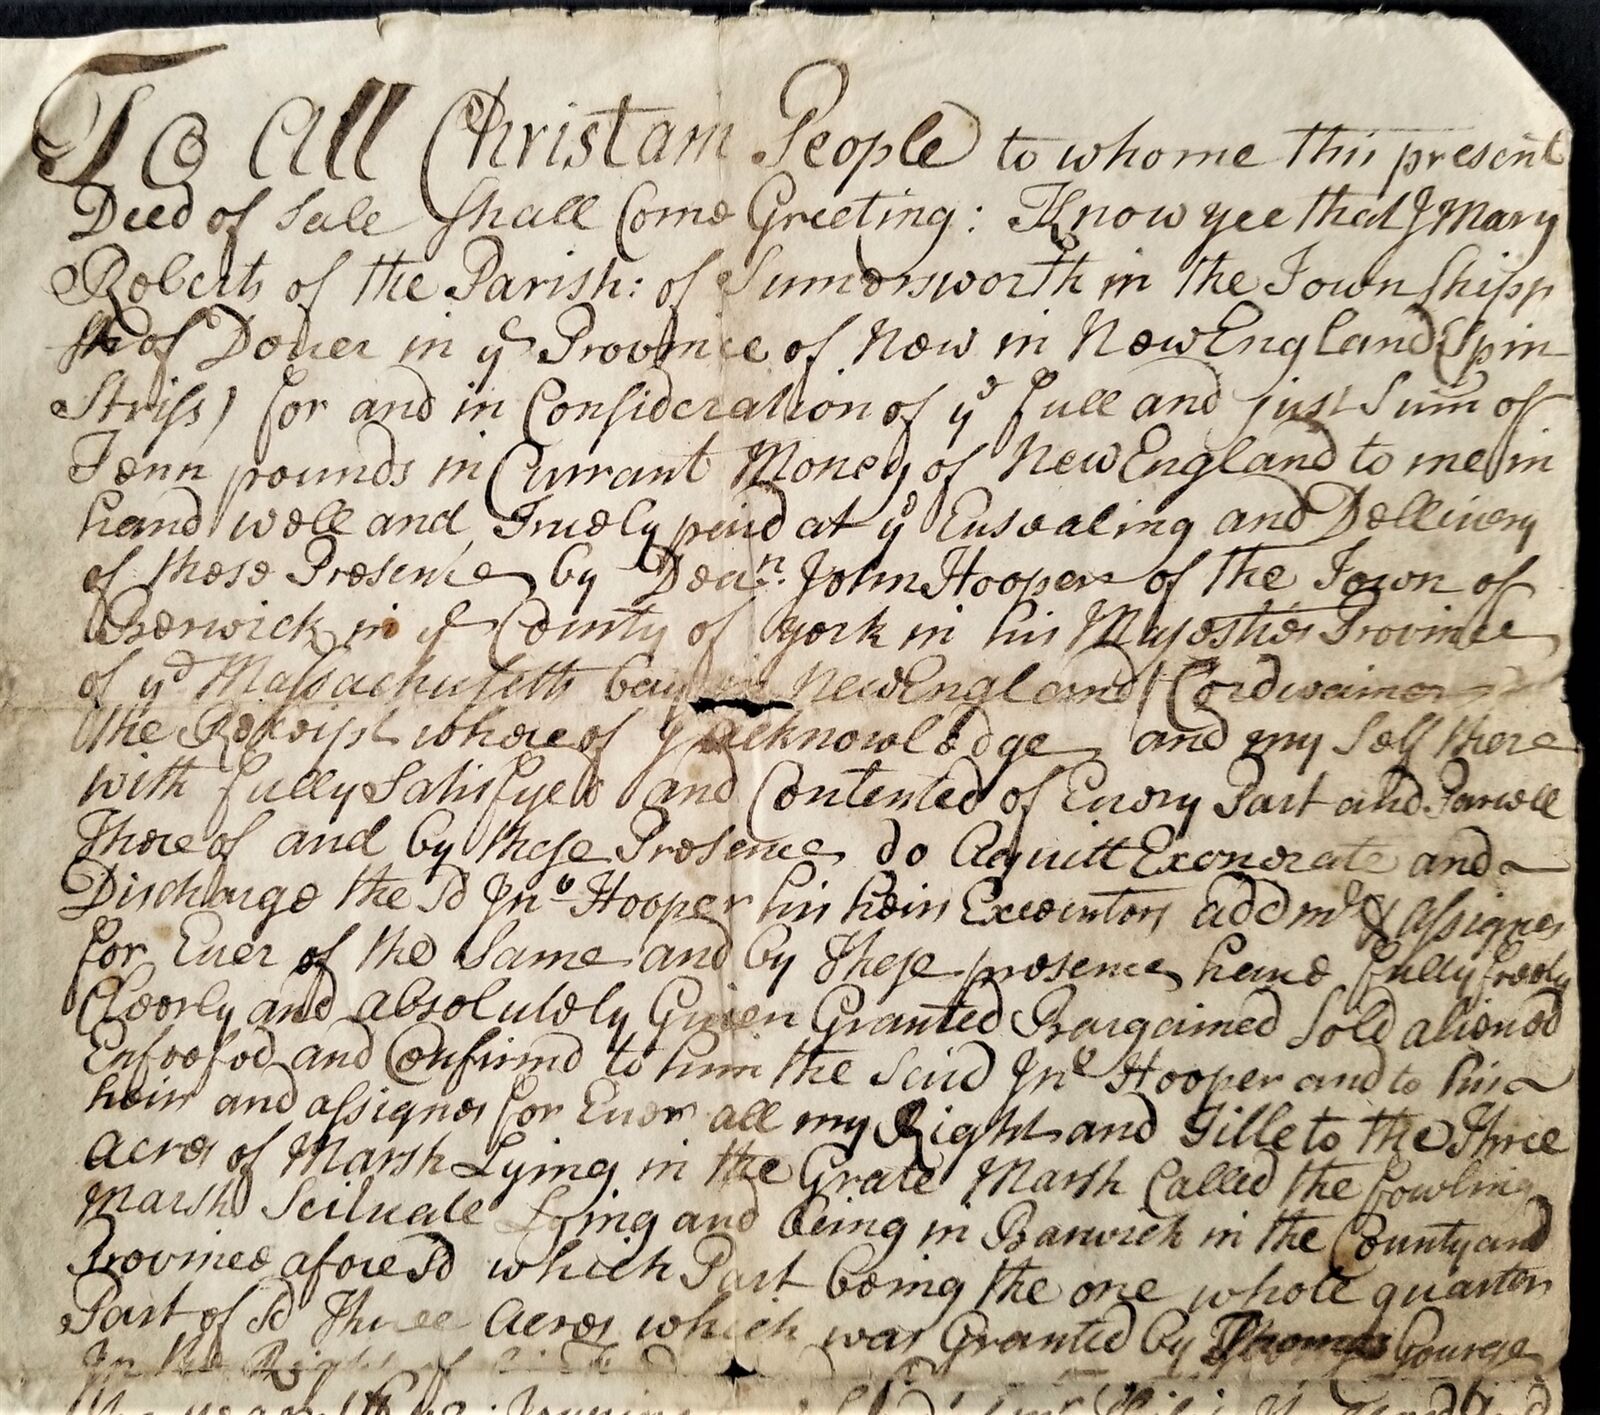 To All Christian People to whome this present
Deed of Sale Shall Come Greeting: Know yee that I Mary
Roberts of the Parish: of Sumersworth in the Town Shipp
of Douer in ye Province of New in New England (Spin
Striss) for and in Consideration of ye full and just Sum of
Tenn pounds in Currant Money of New England to me in
hand well and Truely paid at ye Ensealing and Dellivery
of these Presence by Dean. John Hooper of the Town of
Berwick in ye County of york in his Majesties Province
of ye Massachusetts bay New England (Cordwainer
the Receipt where of I acknowledge and my Self there
with fully Satisfyed and Contented of Every Part and Parcell
There of and by these Presence do Aquitt Exonerate and
Discharge the sd Jno Hooper his heirs Executors addmrs & assignes
for Euer of the Same and by These presence haue fully freely
Cleerly and absolutely Giuen Granted Bargained Sold aliened
Enfeefed and Confirmd to him the Said Jno Hooper and to his
heirs and assignes for Euer all my Right and Title to the Three
acres of Marsh Lying in the Grate Marsh Called the fowling
Marsh Scituate Lying and being in Barwick in the County and
Province afore sd which Part being the one whole quarter
Part of sd Three acres which was Granted by Thomas Gourge
In the Right of